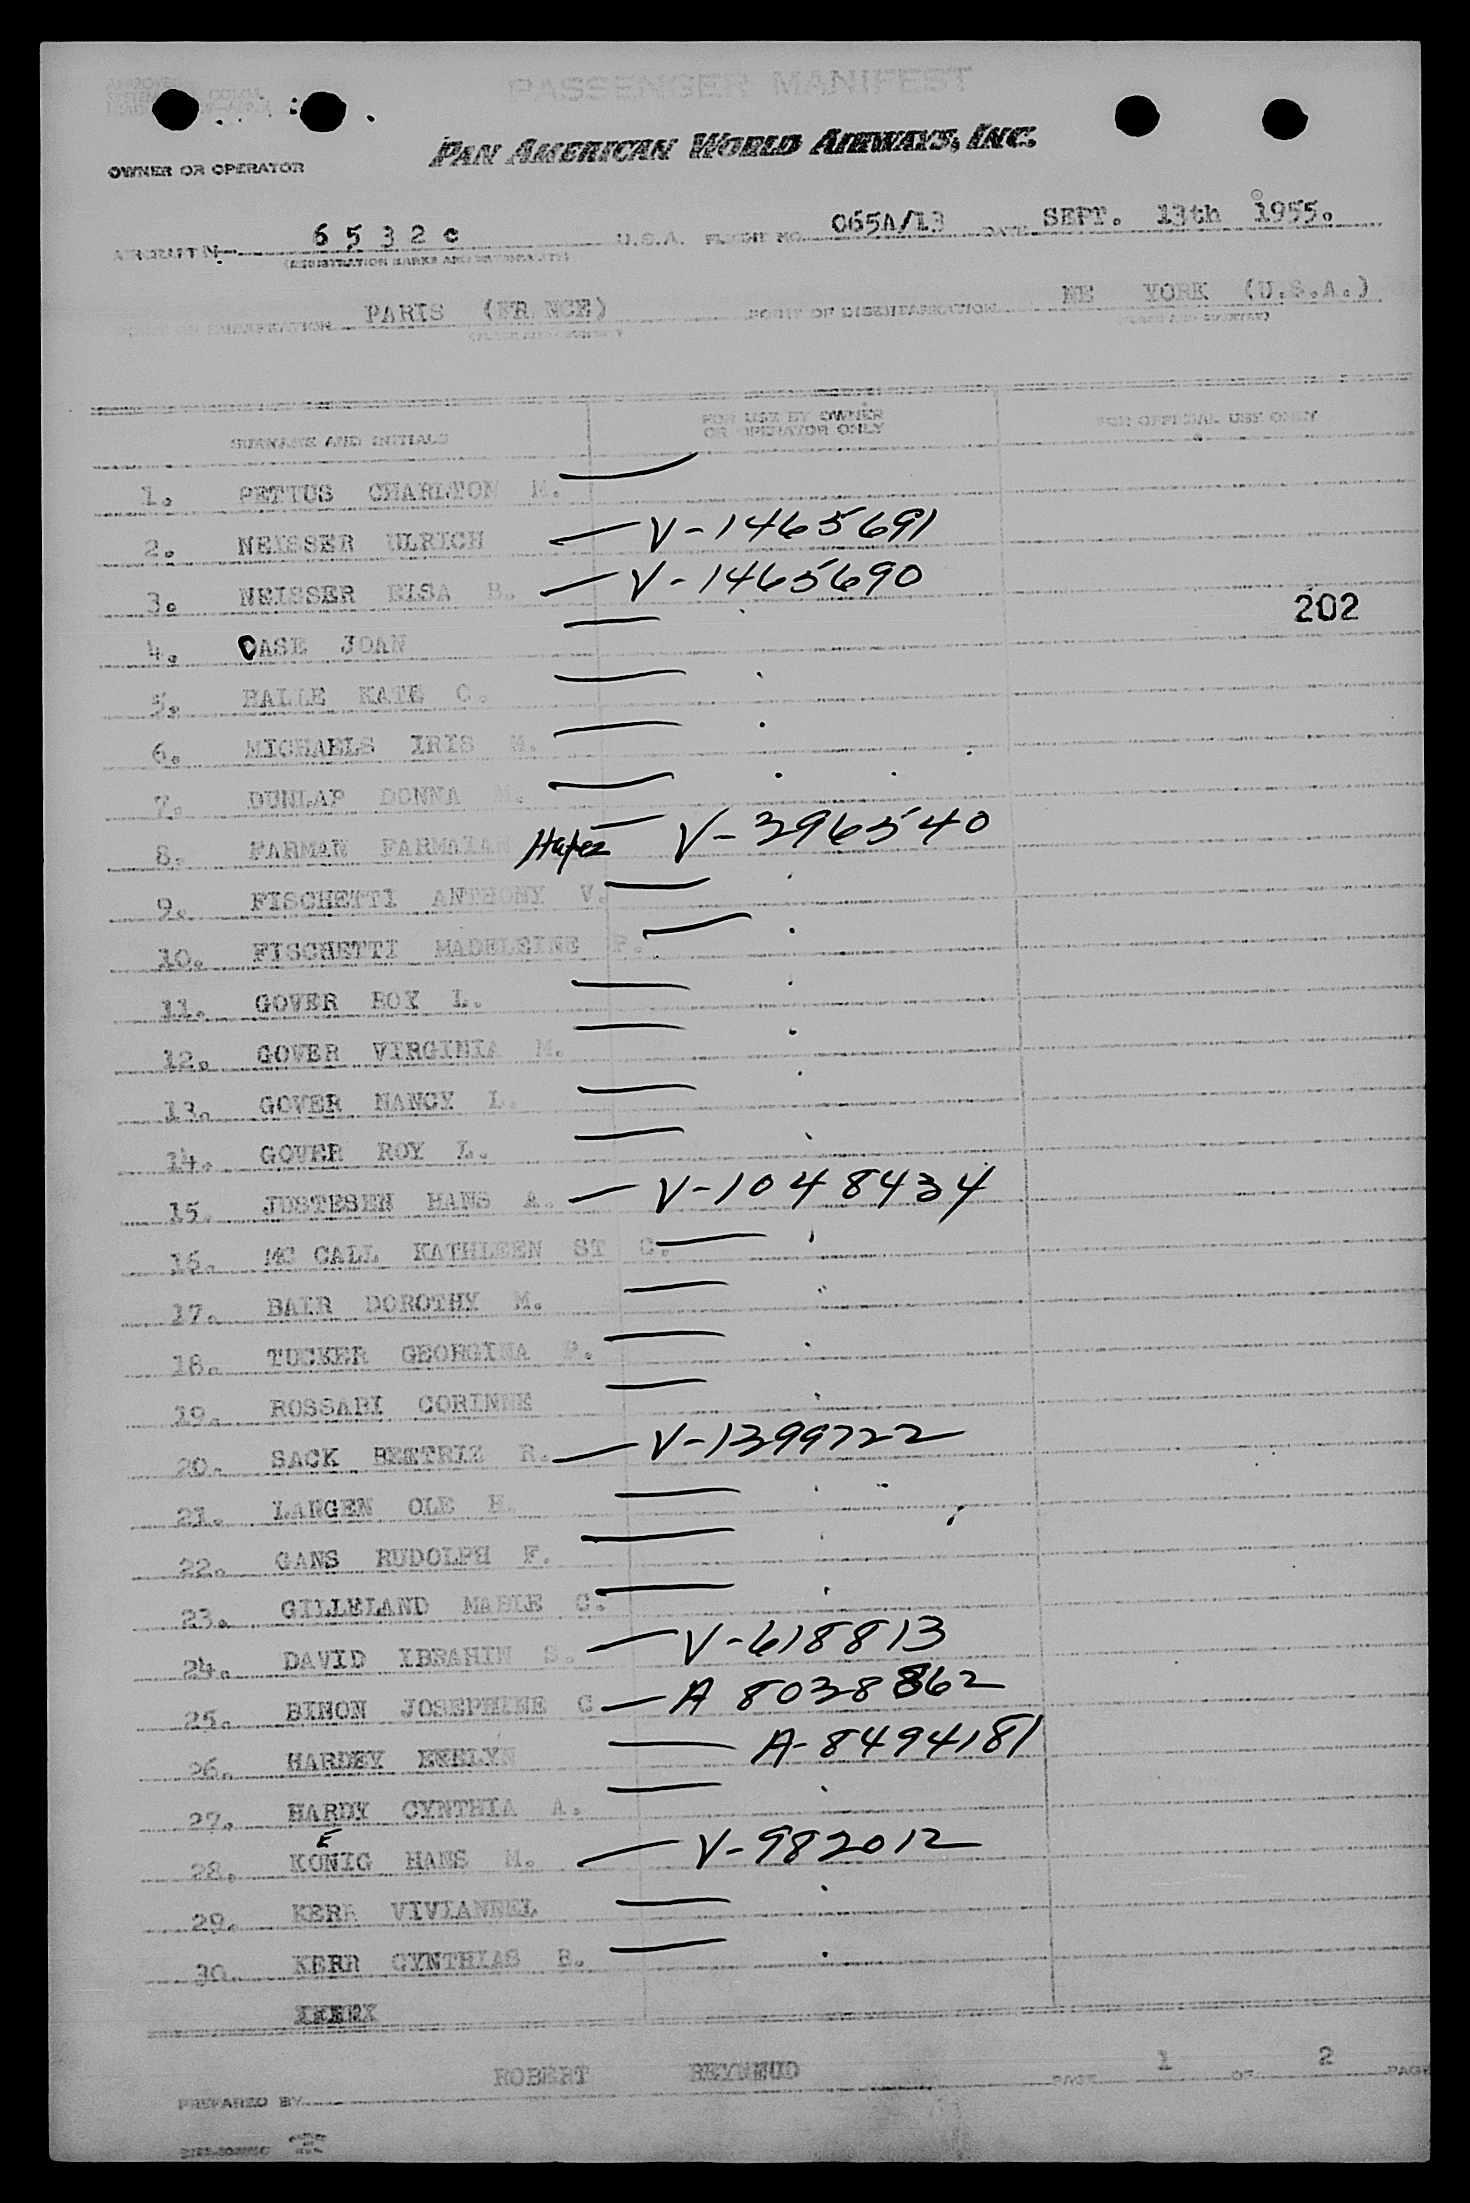 PASSENGER MANIFEST
PAN AMERICAN WORLD AIRWAYS, INC.
OWNER OR OPERATOR
AIRCRAFT N- 6532c U.S.A. FLIGHT NO. 065A/13 DATE SEPT. 13th 1955.
(REGISTRATION MARKS AND NATIONALITY)
EMBARKATION PARIS (FR NCE) PORT OF DISEMBARKATION NE YORK (U.S.A.)
(PLACE AND COUNTRY) (PLACE AND COUNTRY)
SURNAME AND INITIALS FOR USE BY OWNER OR OPERATOR ONLY FOR OFFICIAL USE ONLY
1. PETTUS CHARLTON M.
2. NEISSER ULRICH V-1465691
3. NEISSER ELSA B. V-1465690
202
4. CASE JOAN
5. HALLE KATE C.
6. MICHAELS IRIS M.
7. DUNLAP DONNA M.
8. FARMAN FARMAIAN Hafez V-3965540
9. FISCHETTI ANTHONY V.
10. FISCHETTI MADELEINE P.
11. GOVER ROY L.
12. GOVER VIRGINIA M.
13. GOVER NANCY L.
14. GOVER ROY L.
15. JUSTESEN HANS A. V-1048434
16. MC CALL KATHLEEN ST C.
17. BAIR DOROTHY M.
18. TUCKER GEORGINA P.
19. ROSSABI CORINNE
20. SACK BEETRIZ R. V-1399722
21. LANGEN OLE H.
22. GANS RUDOLPH F.
23. GILLELAND MABLE C.
24. DAVID IBRAHIM S. V-618813
25. BINON JOSEPHINE C A 8038862
26. HARDEY EVELYN A-8494181
27. HARDY CYNTHIA A.
E
28. KONIG HANS M. V-982012
29. KERR VIVIANNEL
30. KERR CYNTHIAS B.
PREPARED BY ROBERT REYNAUD PAGE 1 OF 2 PAGE